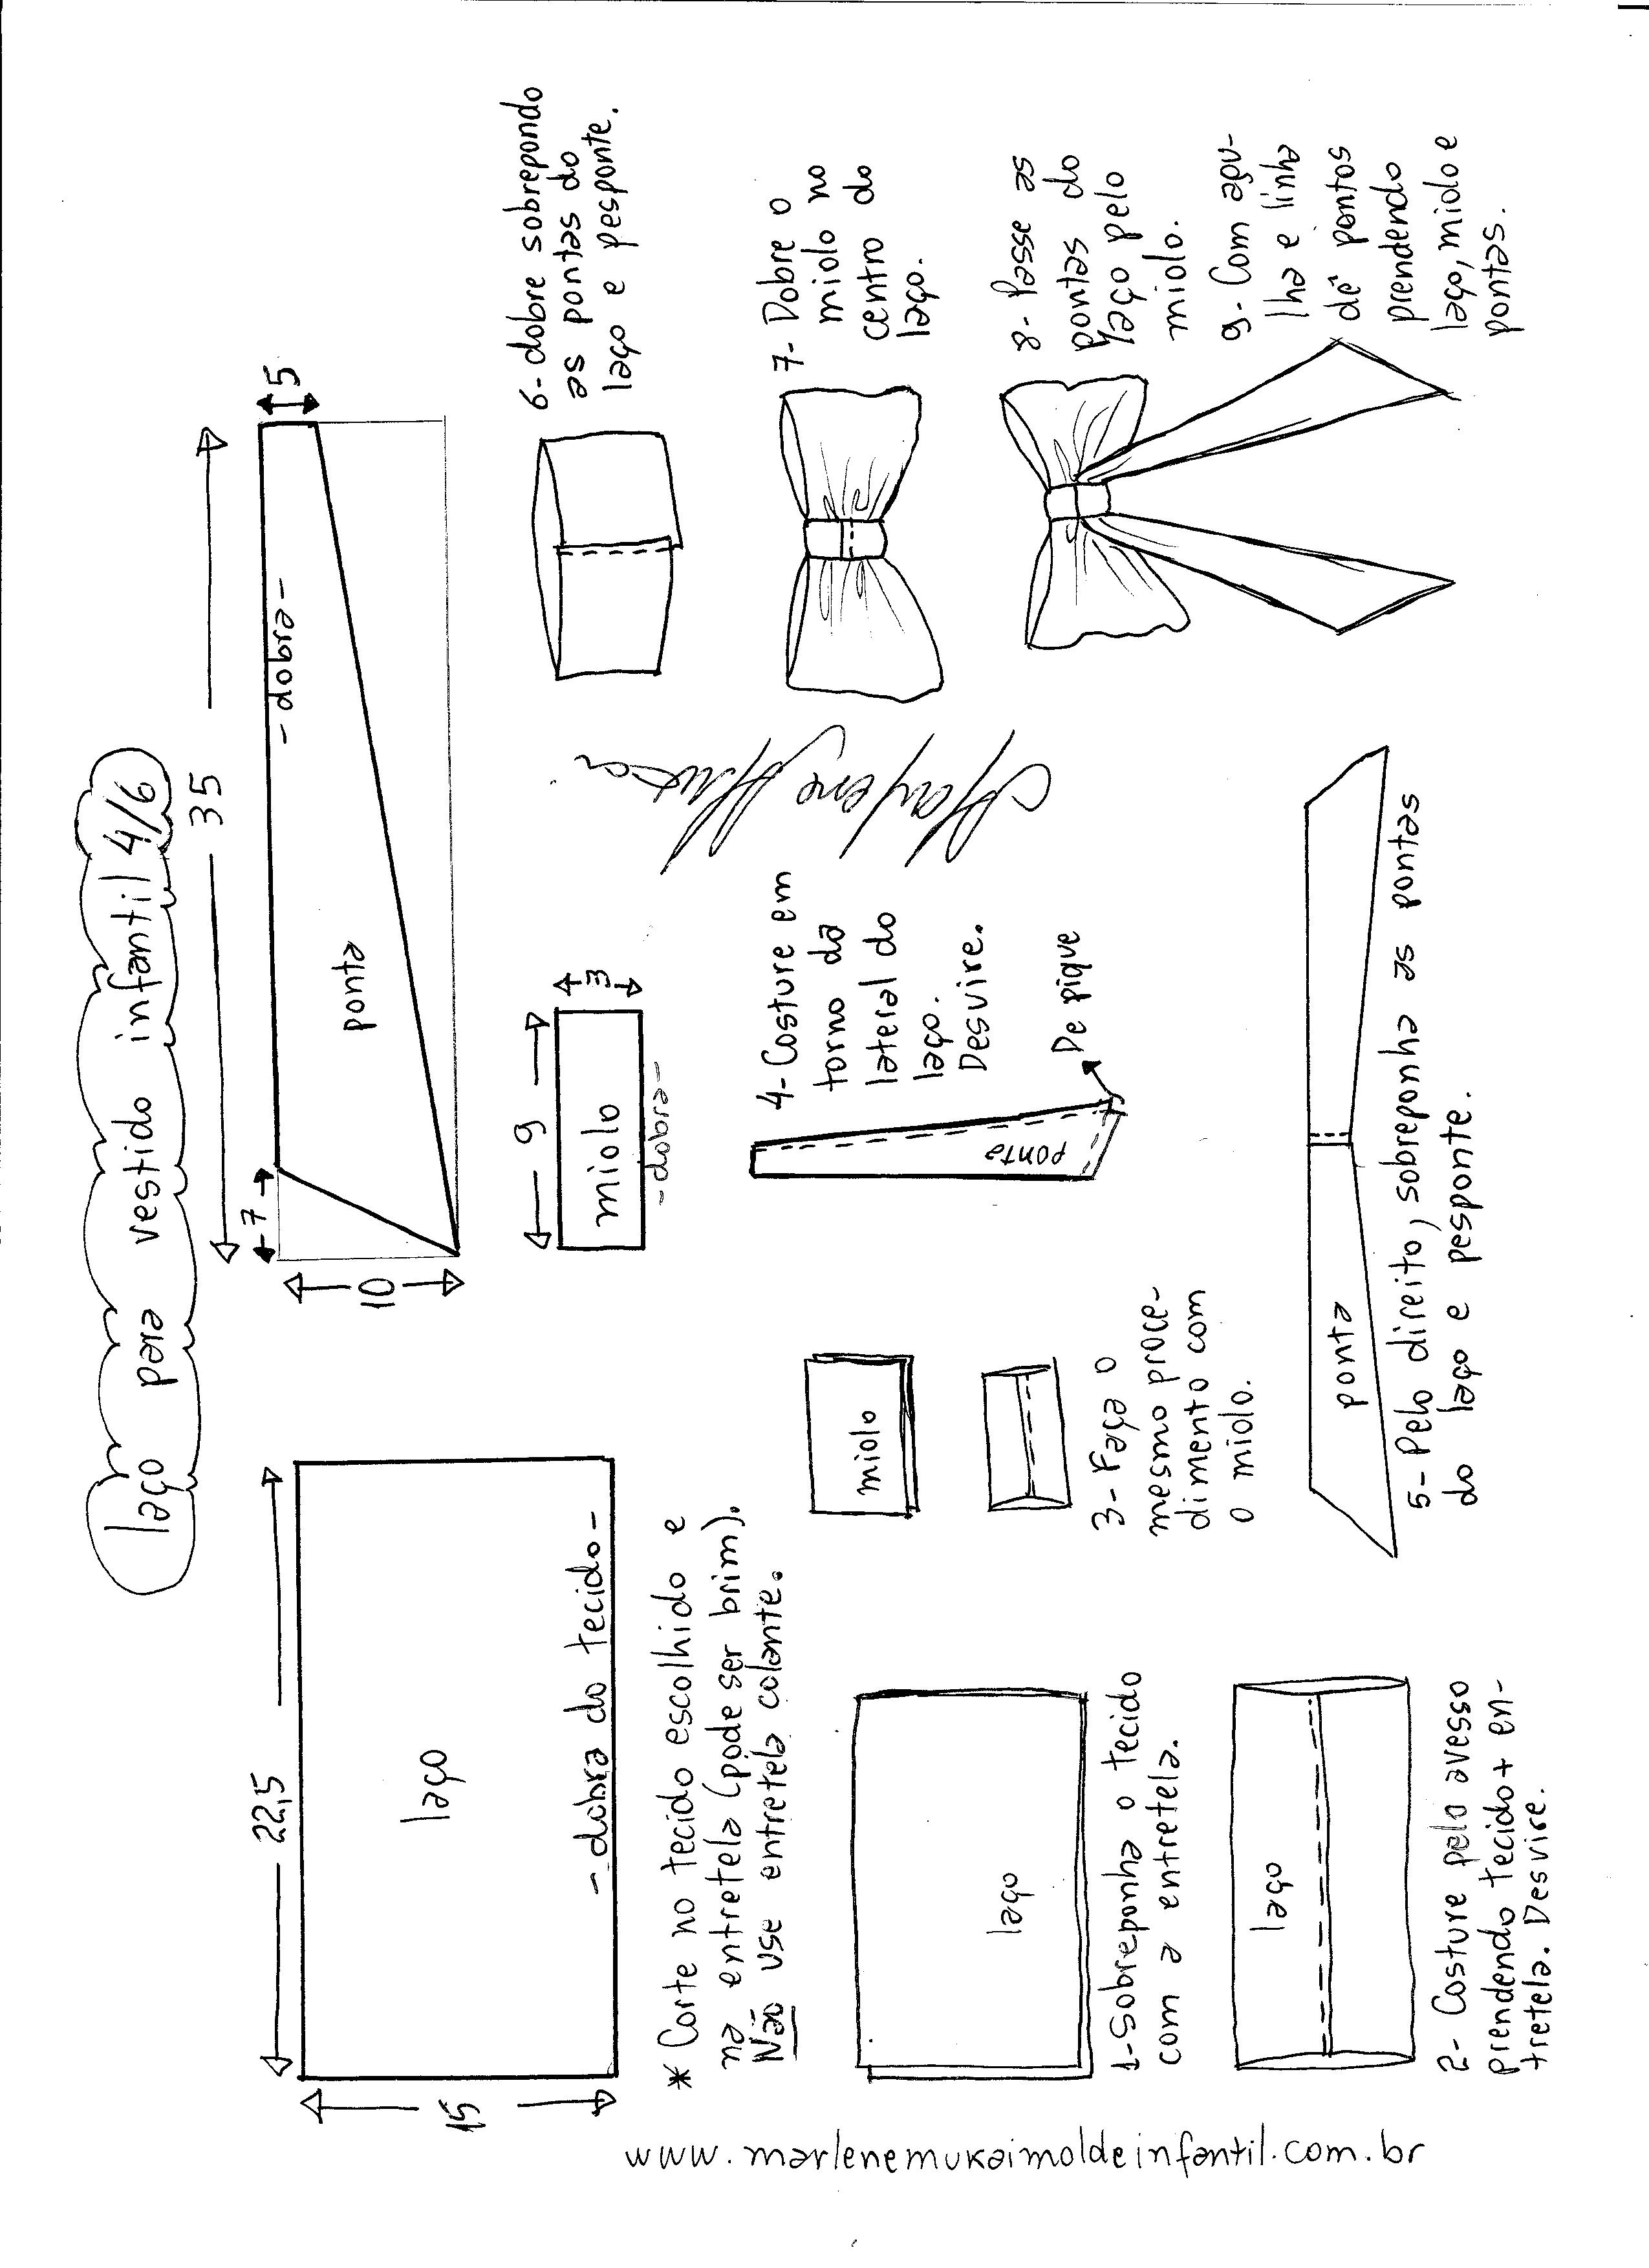 laço para vestido infantil 4/6
22,5
15
laço
- dobra do tecido -
* Corte no tecido escolhido e
na entretela (pode ser brim).
Não use entretela colante.
35
7
10
5
- dobra -
ponta
9
3
miolo
- dobra -
laço
1- Sobreponha o tecido
com a entretela.
laço
2- Costure pelo avesso
prendendo tecido + en-
tretela. Desvire.
miolo
3- Faça o
mesmo proce-
dimento com
o miolo.
ponta
4- Costure em
torno da
lateral do
laço.
Desvire.
De pique
ponta
5- Pelo direito, sobreponha as pontas
do laço e pesponte.
6- dobre sobrepondo
as pontas do
laço e pesponte.
7- Dobre o
miolo no
centro do
laço.
8- Passe as
pontas do
laço pelo
miolo.
9- Com agu-
lha e linha
dê pontos
prendendo
laço, miolo e
pontas.
www.marlenemukaimoldeinfantil.com.br